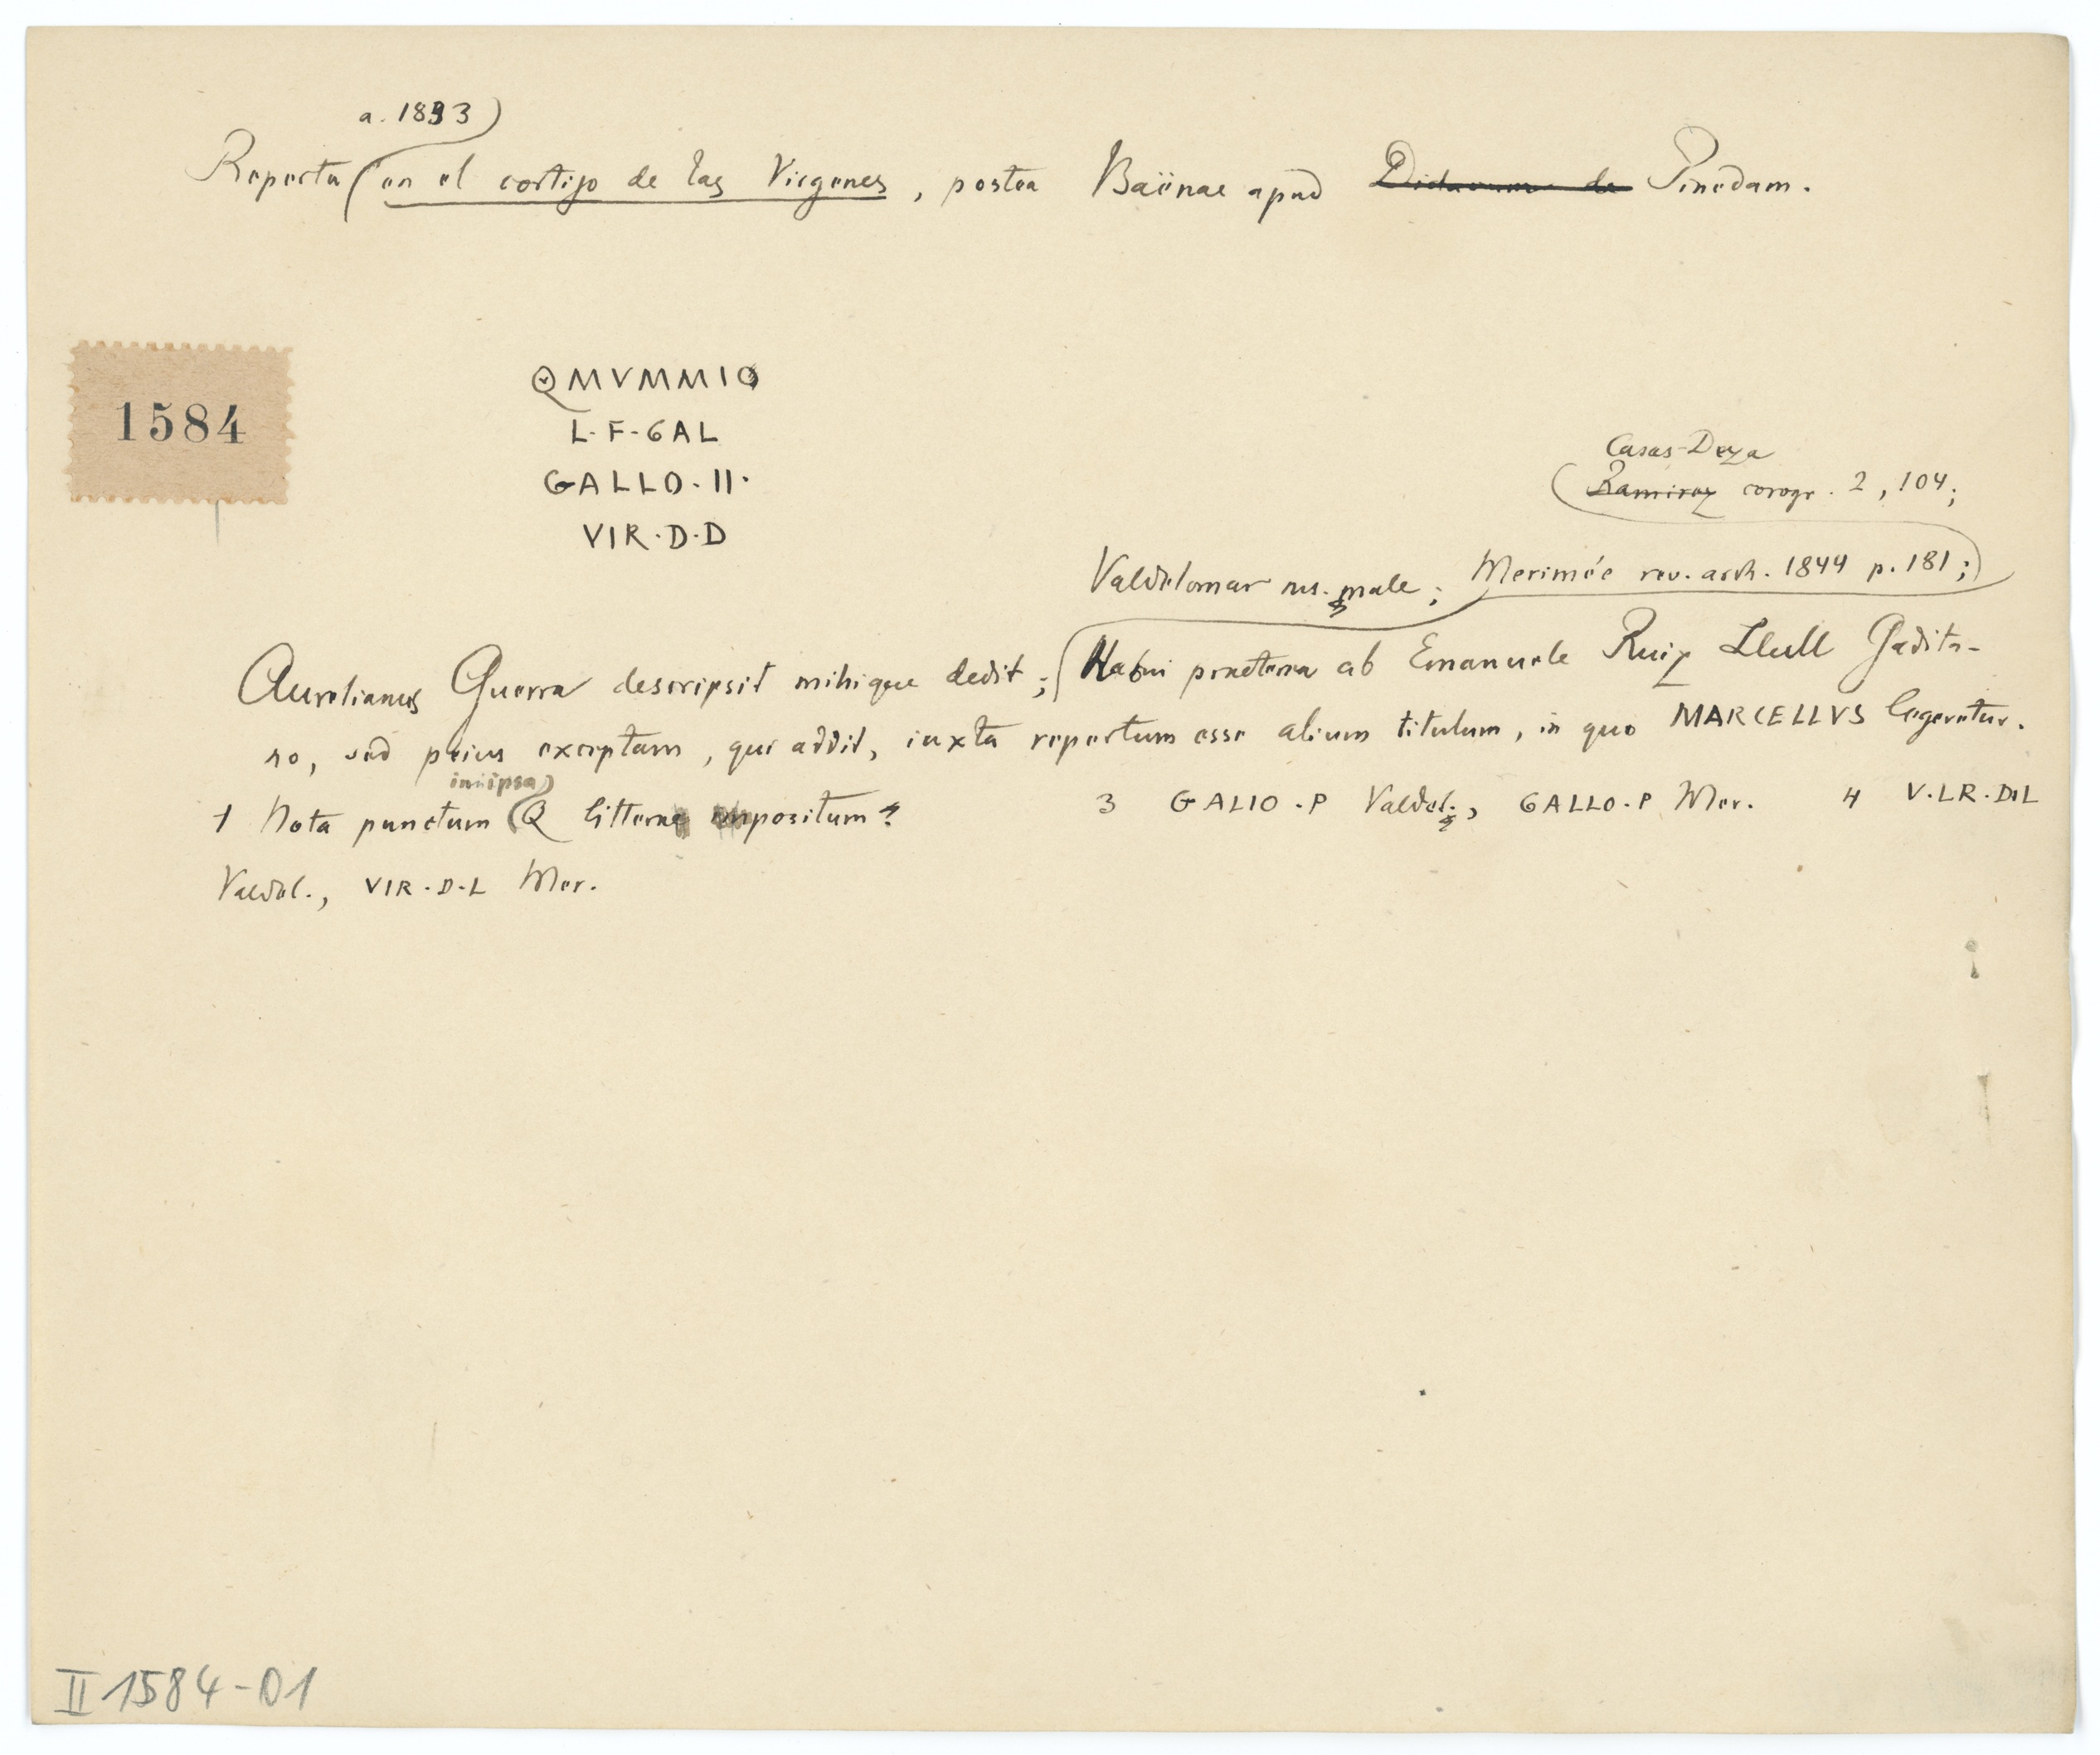 a. 1833
Reperta en el cortijo de las Virgenes, postea Baënae apud Pinedam.
1584
QMVMMIO
L·F·GAL
GALLO·II·
VIR·D·D
Casas-Deza
Ramirez corogr. 2, 104;
Valdelomar ms. male; Merimée rev. arch. 1844 p. 181;
Aurelianus Guerra descripsit mihique dedit; Habui praeterea ab Emanuele Ruiz Llull Gadita-
no, sed peius exceptam, qui addit, iuxta repertum esse alium titulum, in quo MARCELLVS legeretur.
in ipsa
1 Nota punctum Q littera positum? 3 GALIO·P Valdel., GALLO·P Mer. 4 V·LR·D·L
Valdel., VIR·D·L Mer.
II 1584-01